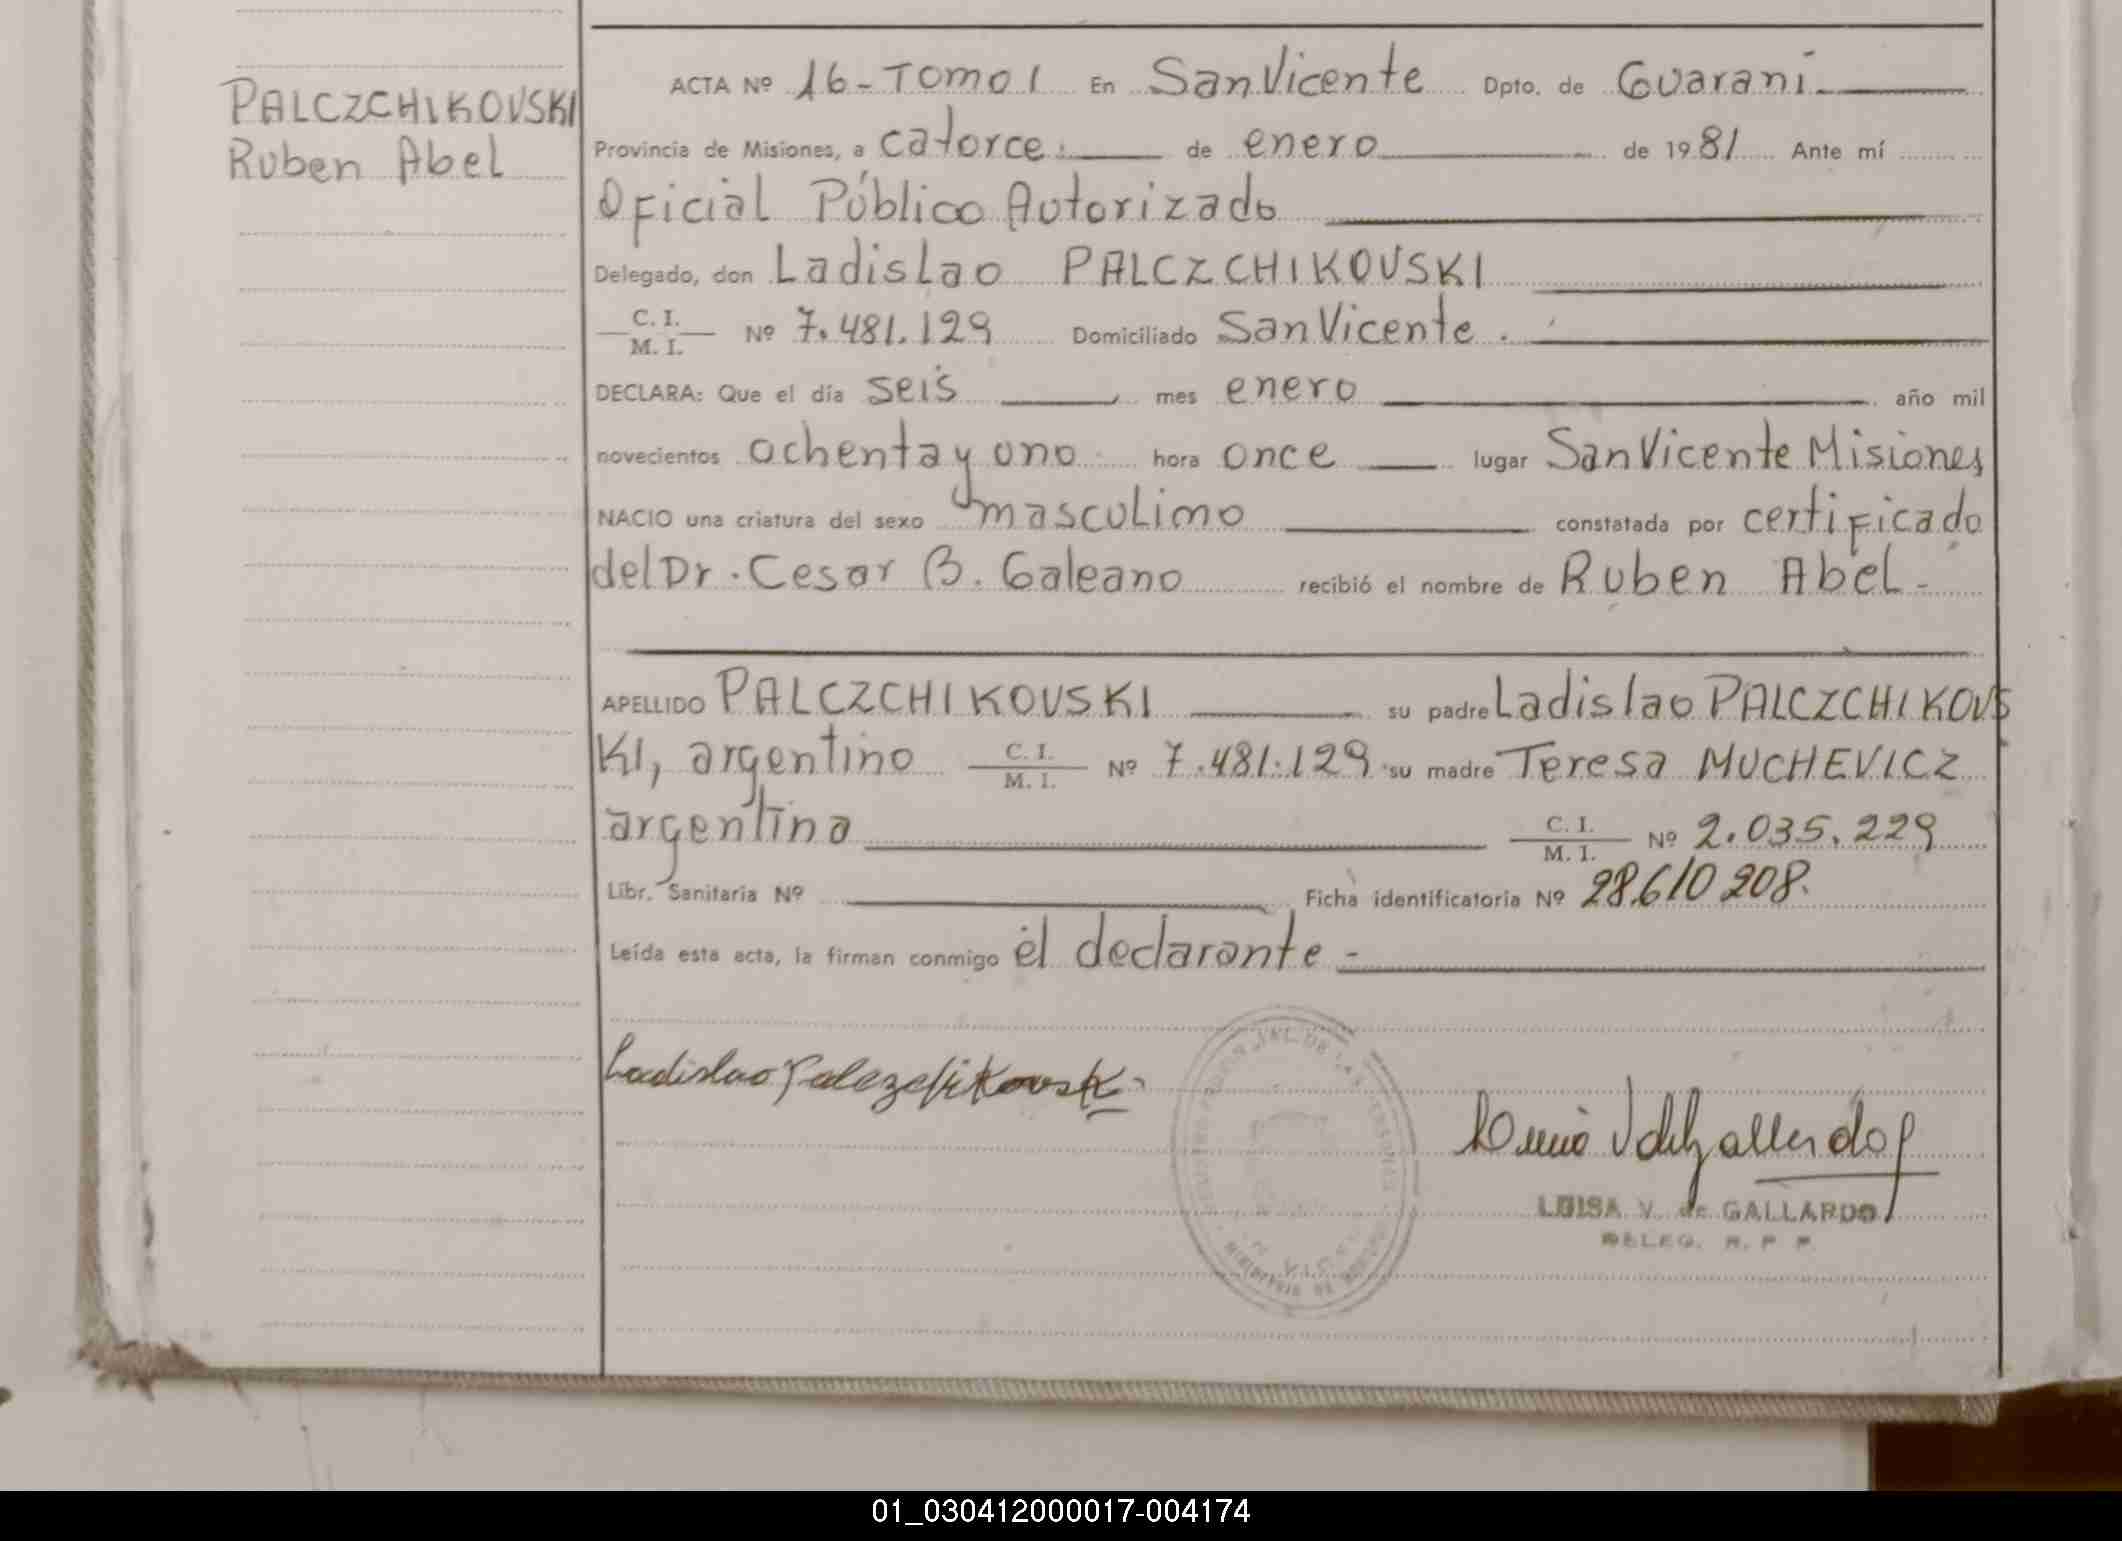 PALCZCHIKOVSKI
Ruben Abel
ACTA Nº 16-TOMO I En San Vicente Dpto. de Guaraní
Provincia de Misiones, a catorce. de enero de 1981 Ante mí
Oficial Público Autorizado
Delegado, don Ladislao PALCZCHIKOVSKI
C. I.
M. I. Nº 7.481.129 Domiciliado San Vicente.
DECLARA: Que el día seis mes enero año mil
novecientos ochenta y uno hora once lugar San Vicente Misiones
NACIO una criatura del sexo masculino constatada por certificado
del Dr. Cesar B. Galeano recibió el nombre de Ruben Abel-
APELLIDO PALCZCHIKOVSKI su padre Ladislao PALCZCHIKOVS
KI, argentino C. I.
M. I. Nº 7.481.129 su madre Teresa MUCHEVICZ
argentina C. I.
M. I. Nº 2.035.229
Libr. Sanitaria Nº Ficha identificatoria Nº 28.610 208.
Leída esta acta, la firman conmigo el declarante-
Ladislao Palczchikovski
LUISA V. de GALLARDO
DELEG. R. P. P.
01_030412000017-004174